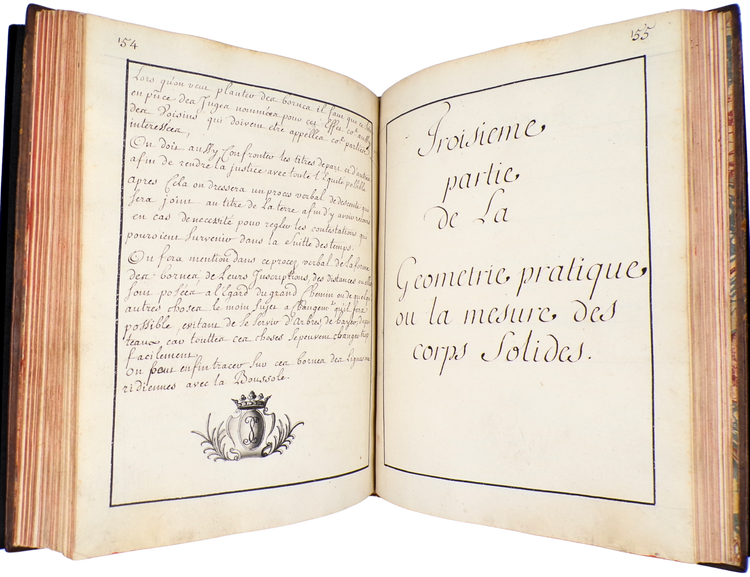 154
Lors qu'on veut planter des bornes il faut que ce
en pñce des Juges nommées pour cet effet
des Voisins qui doivent etre appelles
interessea,
On doit aussy Confronter les titres de part et d'autre
afin de rendre la justice avec toute l'Equité possible
apres Cela on dressera un proces verbal de descente qui
sera joint au titre de la terre afin d'y avoir recours
en cas de necessité pour regler les contestations qui
pouroient Survenir dans la Suitte des temps.
On fera mention dans ce procez verbal de la forme
des bornes, de Leurs Inscriptions, des distances
sont posées a l'égard du grand Chemin ou de quelque
autres choses le moin Sujet a Changemt. qu'il sera
possible, evitant de se Servir d'Arbres de
teaux, car touttes ces choses se peuvent changer
facilement
on peut enfin tracer Sur ces bornes des Lignes
ridiennes avec la Boussole.
155
Troisieme
partie
de La
Geometrie pratique
ou la mesure des
corps Solides.